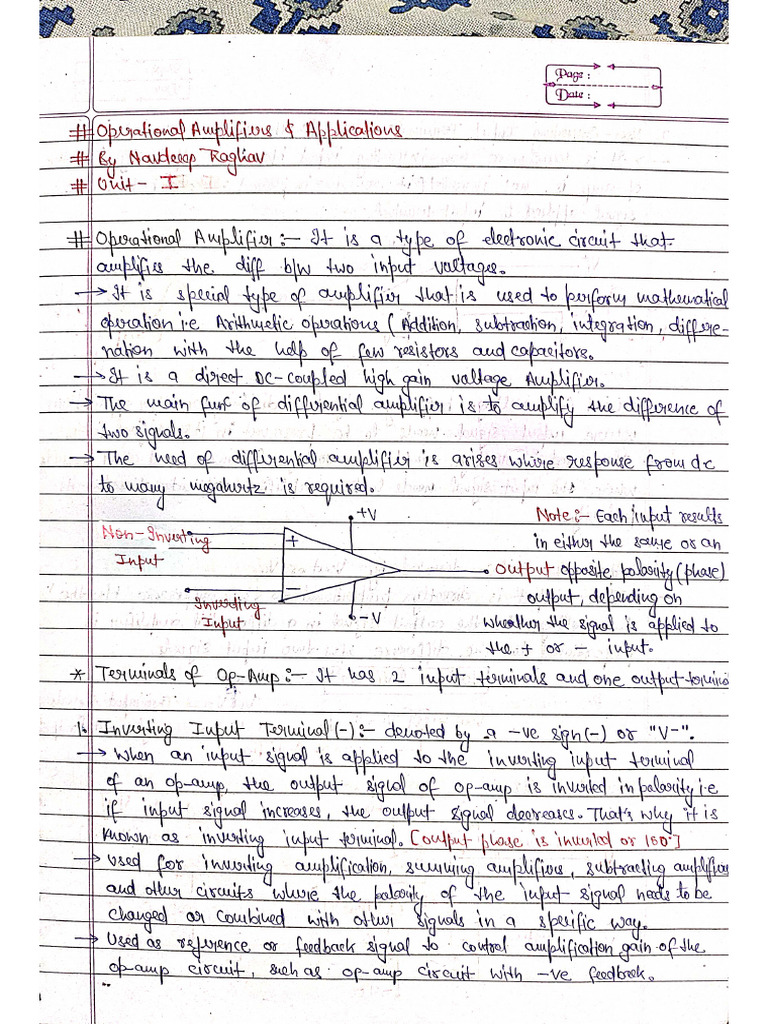 Page :
Date :
# Operational Amplifiers & Applications
# By Navdeep Raghav
# Unit - I
# Operational Amplifier :- It is a type of electronic circuit that
amplifies the diff b/w two input voltages.
→ It is special type of amplifier that is used to perform mathematical
operation i.e Arithmetic operations (Addition, subtraction, integration, differe-
nation with the help of few resistors and capacitors.
→ It is a direct DC-coupled high gain voltage Amplifier.
→ The main funⁿ of differential amplifier is to amplify the difference of
two signals.
→ The need of differential amplifier is arises where response from dc
to many megahurtz is required.
+V
Non-Inverting
Input
+
−
Inverting
Input
-V
Output
Note :- Each input results
in either the same or an
opposite polarity (phase)
output, depending on
wheather the signal is applied to
the + or − input.
* Terminals of Op-Amp :- It has 2 input terminals and one output termina
1. Inverting Input Terminal (-) :- denoted by a -ve sign (-) or "V-".
→ When an input signal is applied to the inverting input terminal
of an op-amp, the output signal of op-amp is inverted in polarity i.e
if input signal increases, the output signal decreases. That's why it is
known as inverting input terminal. [output phase is inverted or 180°]
→ Used for inverting amplification, summing amplifiers, subtracting amplifier
and other circuits where the polarity of the input signal needs to be
changed or combined with other signals in a specific way.
→ Used as reference or feedback signal to control amplification gain of the
op-amp circuit, such as op-amp circuit with -ve feedback.